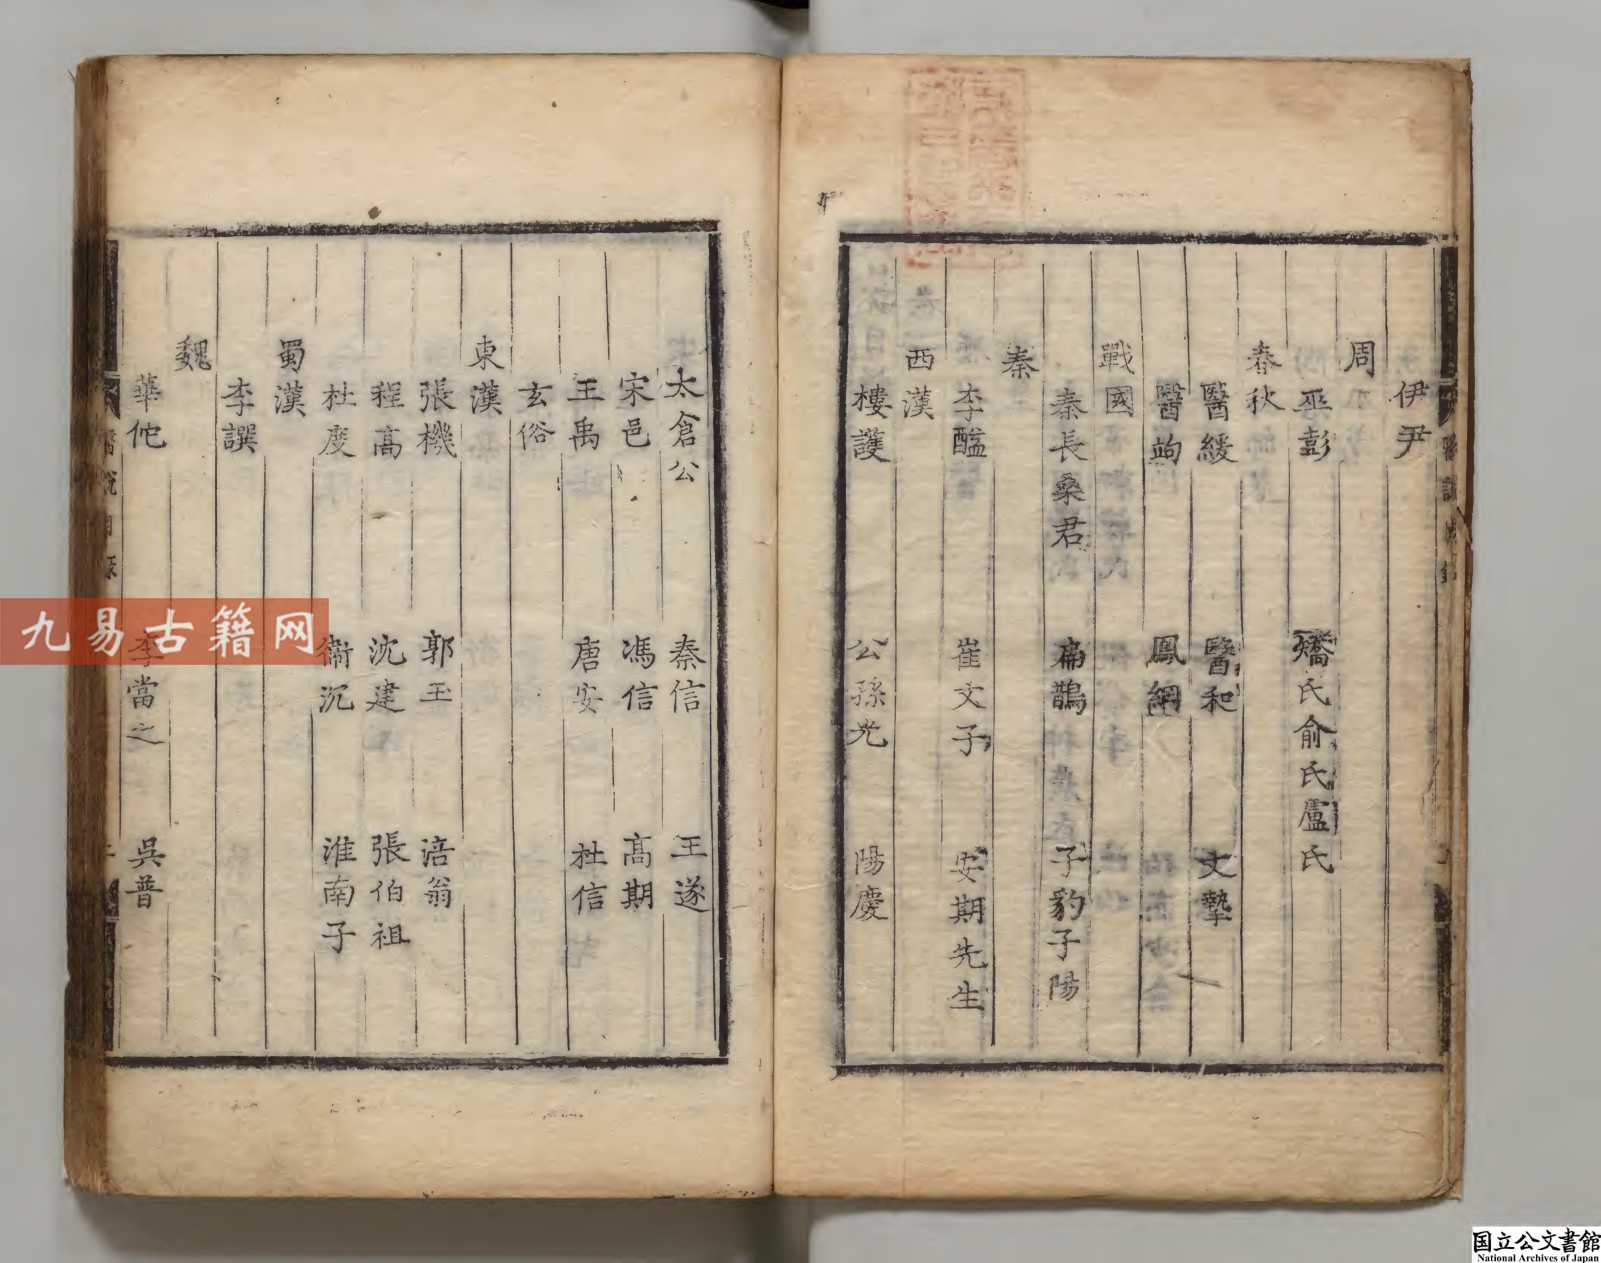 伊尹
周
巫彭 矯氏俞氏盧氏
春秋
醫緩 醫和 文摯
醫竘 鳳綱
戰國
秦長桑君 扁鵲 子豹子陽
秦
李醯 崔文子 安期先生
西漢
樓護 公孫光 陽慶
太倉公 秦信 王遂
宋邑 馮信 高期
王禹 唐安 杜信
玄俗
東漢
張機 郭玉 涪翁
程高 沈建 張伯祖
杜度 衞沉 淮南子
蜀漢
李譔
魏
華佗 李當之 吳普
醫說目錄
九易古籍网
国立公文書館
National Archives of Japan